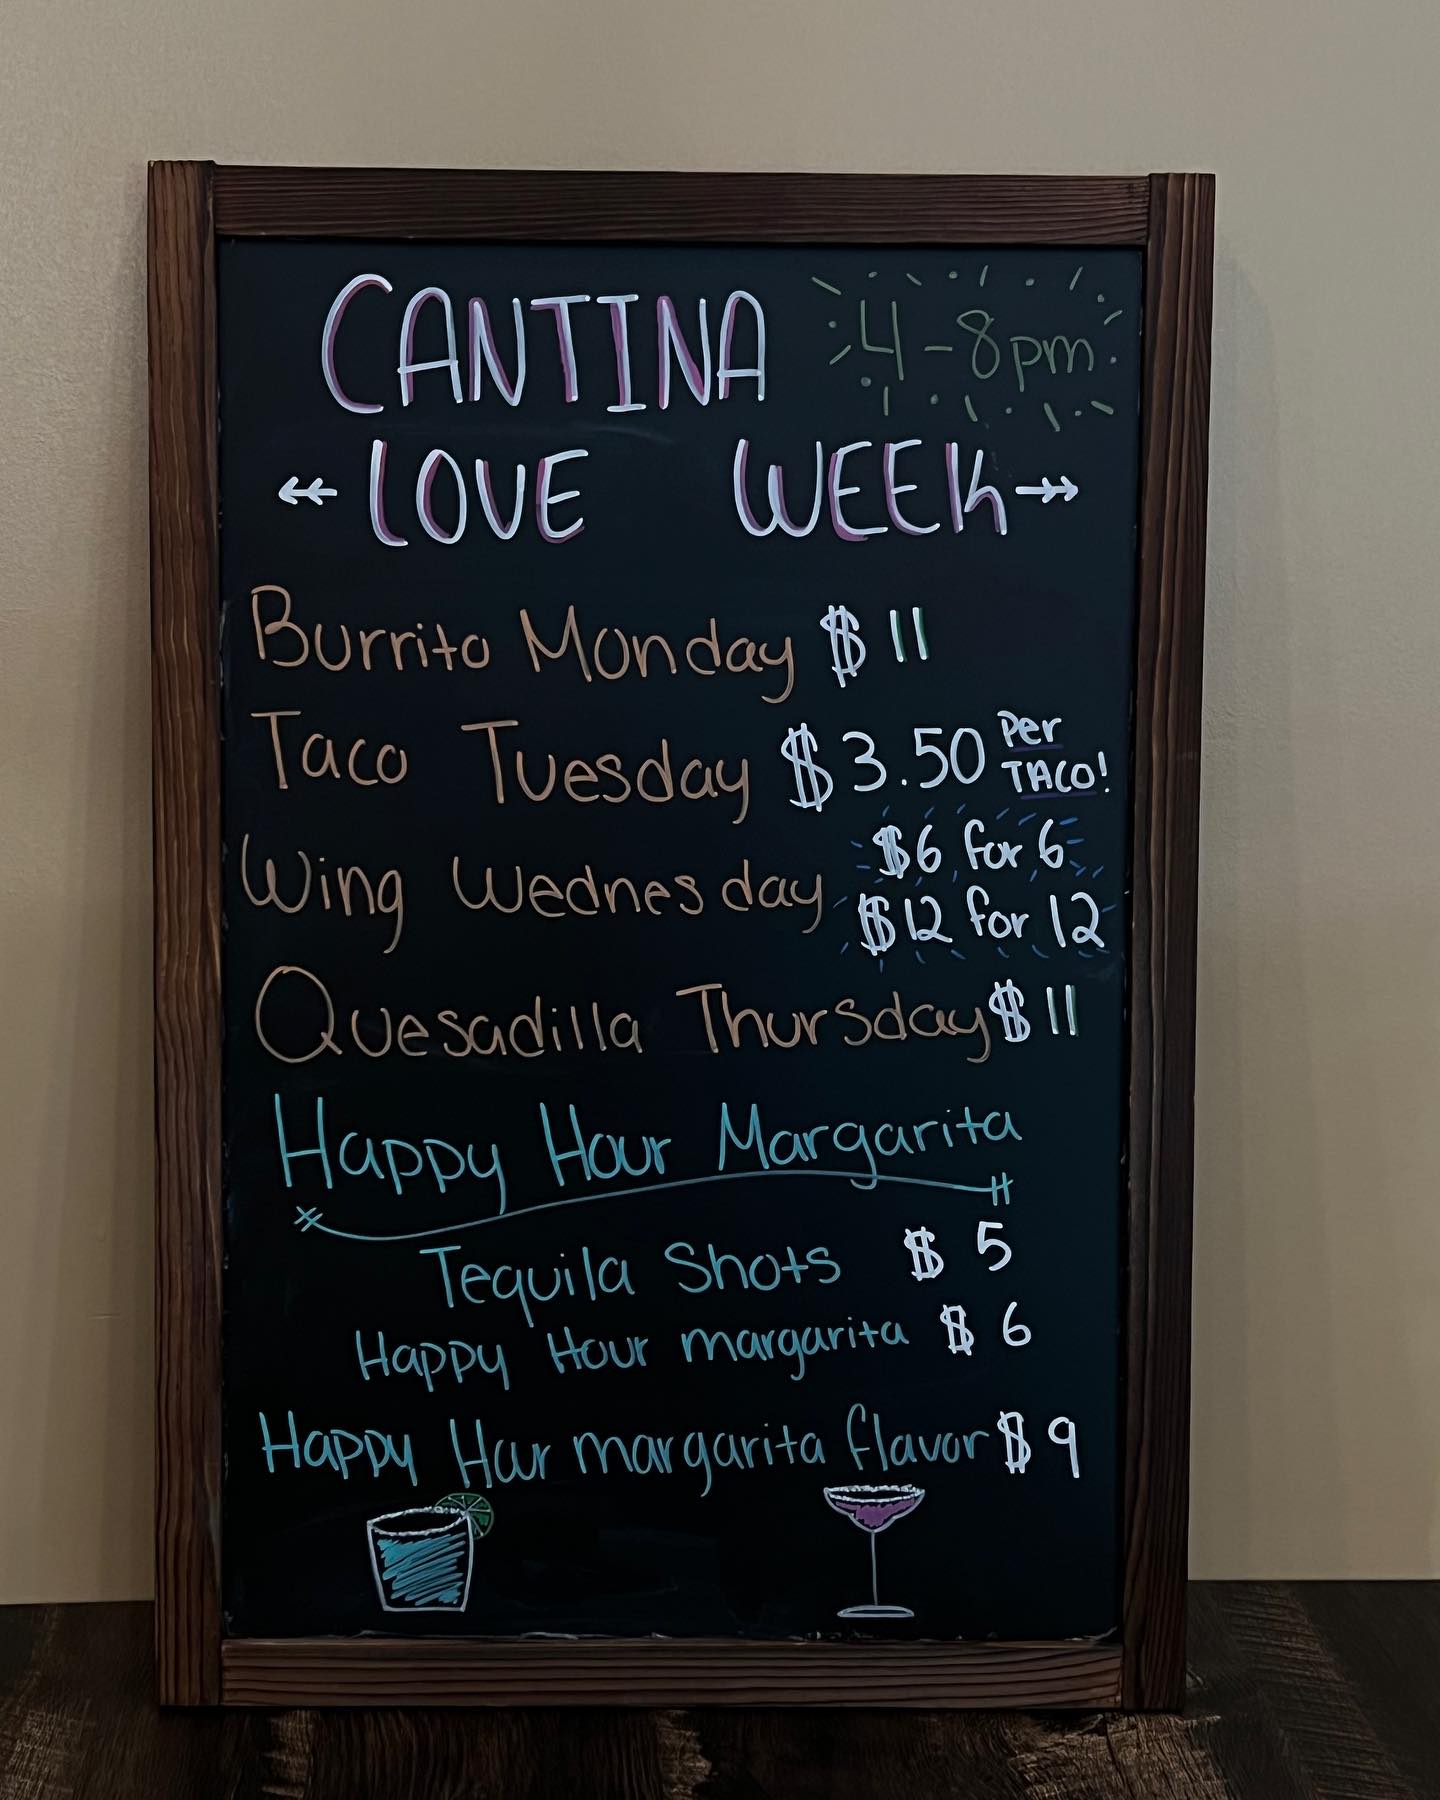 CANTINA 4-8pm
LOVE WEEK
Burrito Monday $11
Taco Tuesday $3.50 Per TACO!
Wing Wednesday $6 for 6
$12 for 12
Quesadilla Thursday $11
Happy Hour Margarita
Tequila Shots $5
Happy Hour margarita $6
Happy Hour margarita flavor $9